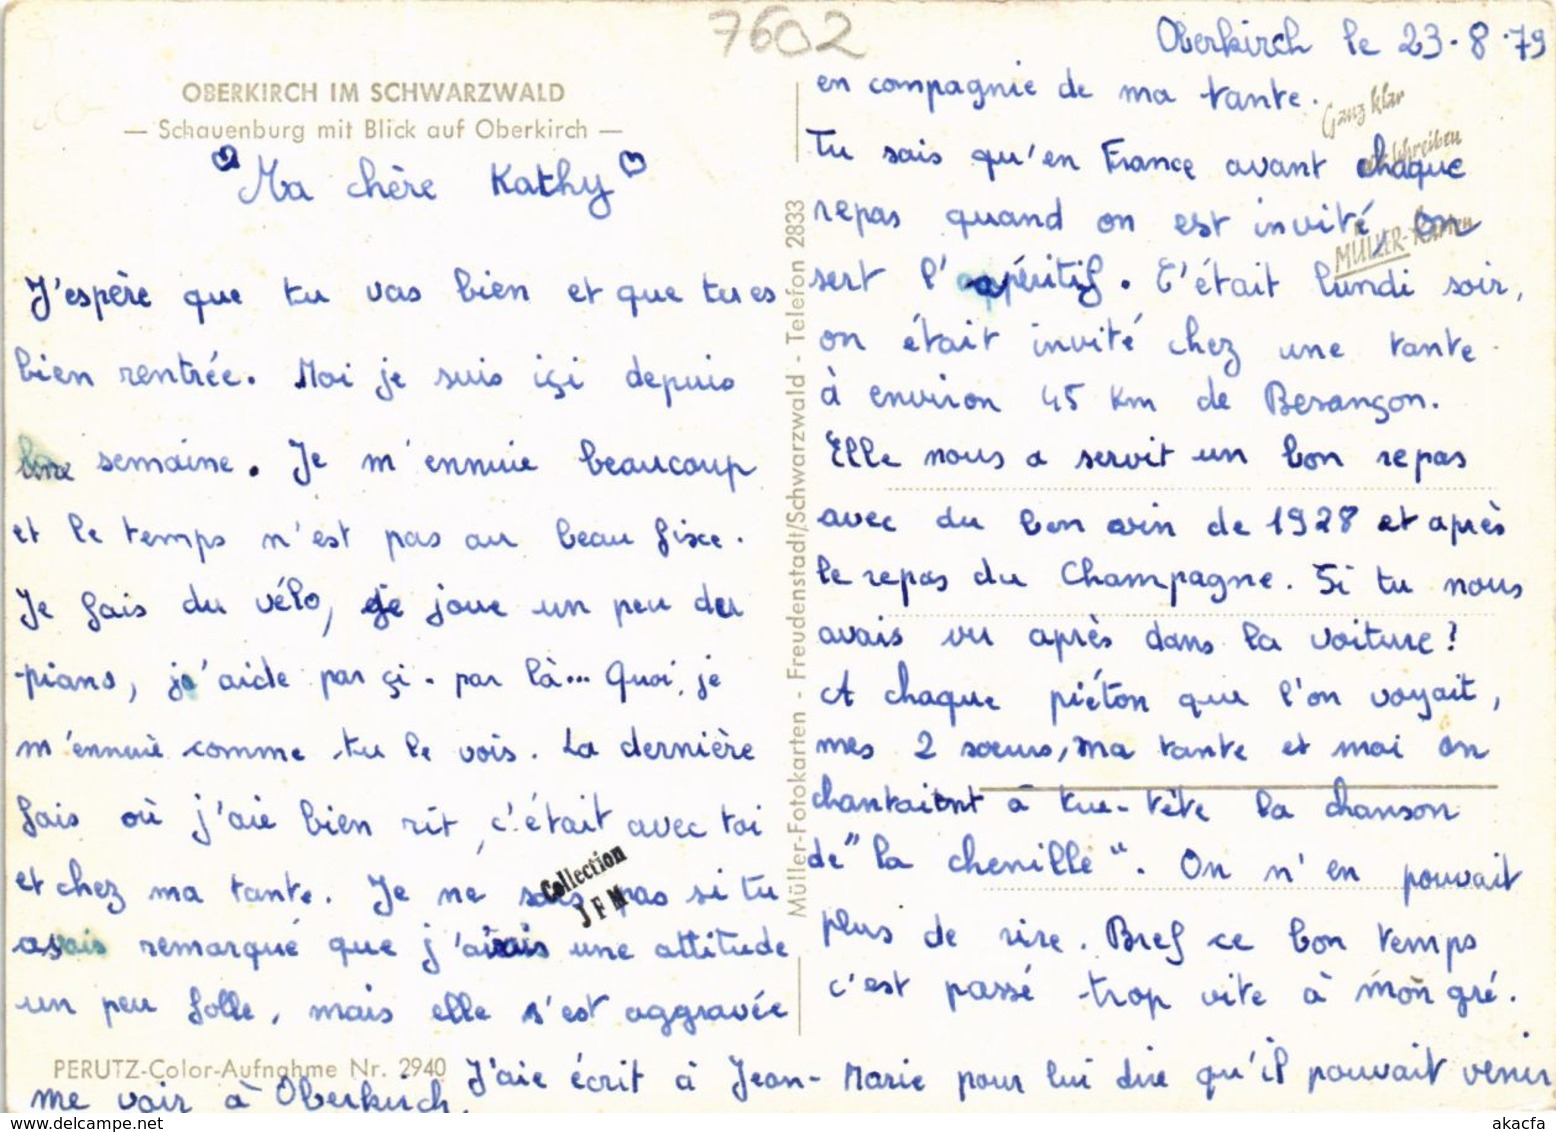 7602
Oberkirch le 23-8-79
OBERKIRCH IM SCHWARZWALD
— Schauenburg mit Blick auf Oberkirch —
Ma chère Kathy
J'espère que tu vas bien et que tu es
bien rentrée. Moi je suis içi depuis
une semaine. Je m'ennuie beaucoup
et le temps n'est pas au beau fixe.
Je fais du vélo, je joue un peu du
piano, j'aide par çi - par là... Quoi, je
m'ennuie comme tu le vois. La dernière
fois où j'aie bien rit, c'était avec toi
et chez ma tante. Je ne sais pas si tu
avais remarqué que j'avais une attitude
un peu folle, mais elle s'est aggravée
en compagnie de ma tante.
Tu sais qu'en France avant chaque
repas quand on est invité, on
sert l'apéritif. C'était lundi soir,
on était invité chez une tante
à environ 45 km de Besançon.
Elle nous a servit un bon repas
avec du bon vin de 1928 et après
le repas du Champagne. Si tu nous
avais vu après dans la voiture!
A chaque piéton que l'on voyait,
mes 2 sœurs, ma tante et moi on
chantaient à tue-tête la chanson
de "la chenille". On n'en pouvait
plus de rire. Bref ce bon temps
c'est passé trop vite à mon gré.
J'aie écrit à Jean-Marie pour lui dire qu'il pouvait venir
me voir à Oberkirch.
Ganz klar
schreiben
MÜLLER-Karten
Müller-Fotokarten - Freudenstadt/Schwarzwald - Telefon 2833
PERUTZ-Color-Aufnahme Nr. 2940
Collection
JFM
www.delcampe.net
akacfa